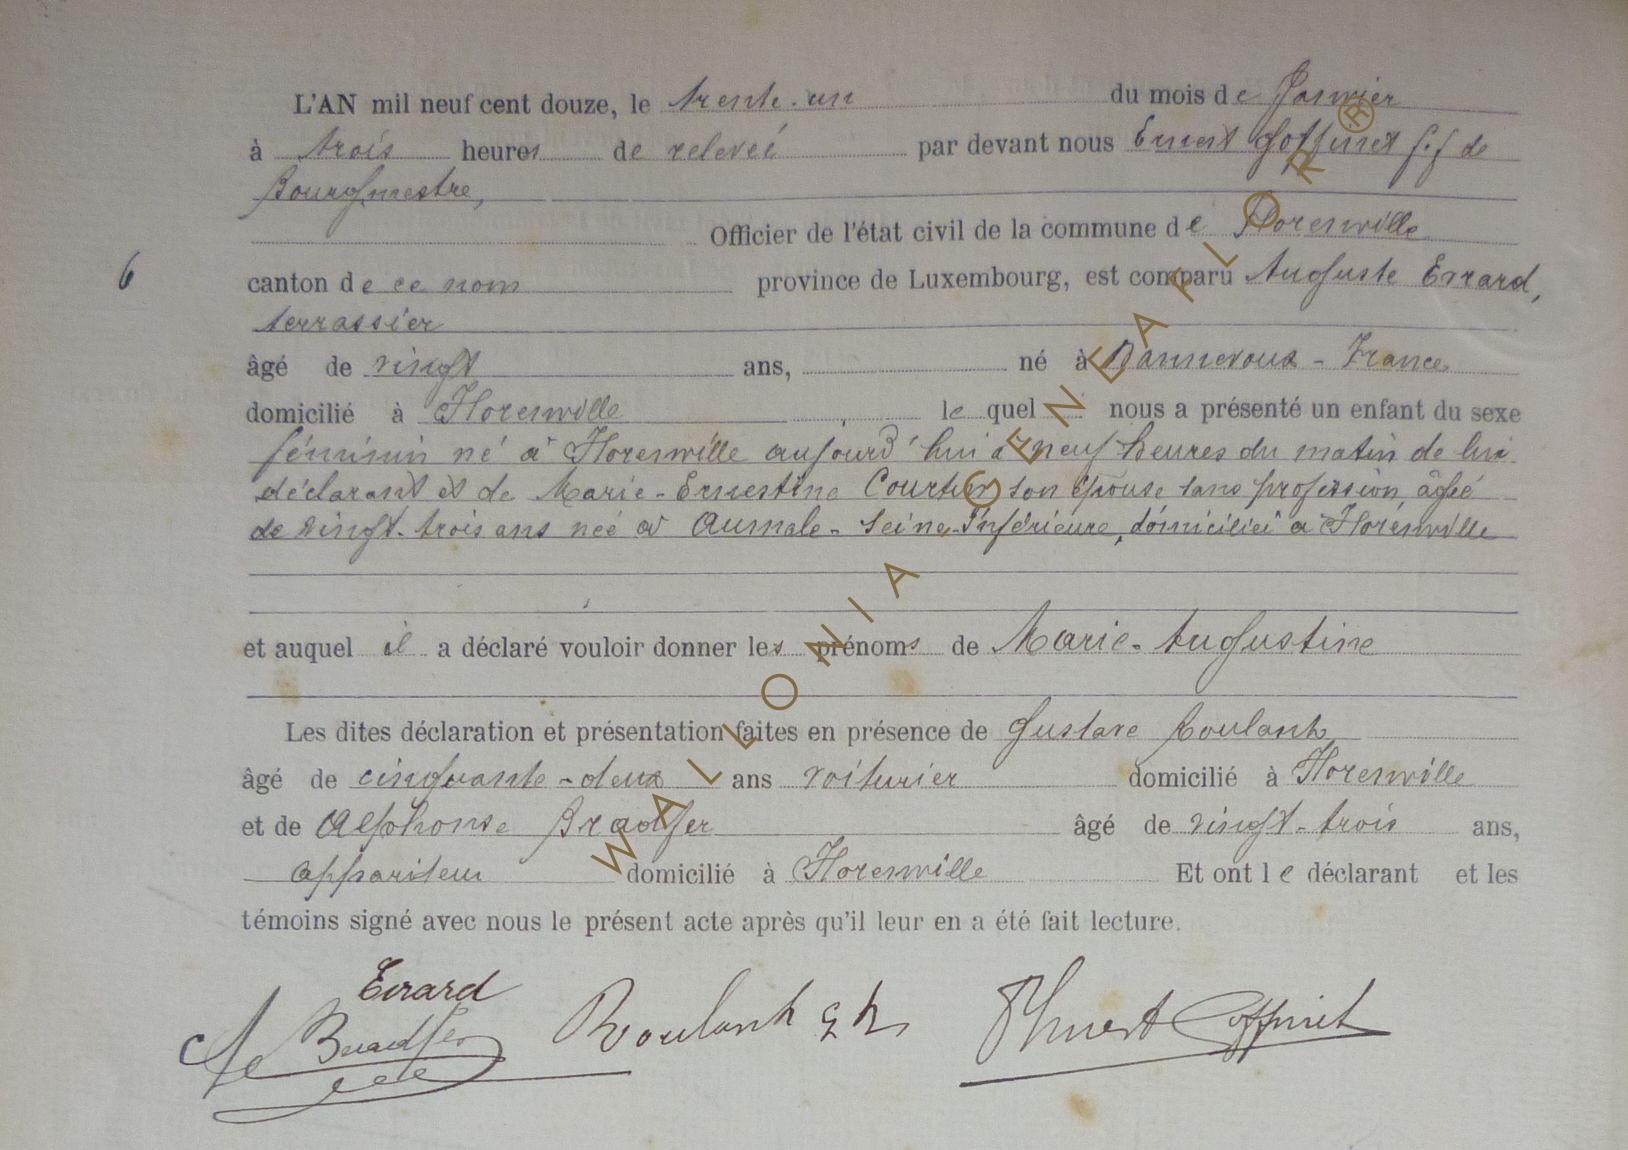 L'AN mil neuf cent douze, le trente-un du mois de Janvier
à trois heures de relevée par devant nous Ernest Goffinet f.f de
Bourgmestre,
Officier de l'état civil de la commune de Florenville
6 canton de ce nom province de Luxembourg, est comparu Auguste Errard,
terrassier
âgé de vingt ans, né à Dannevoux - France
domicilié à Florenville lequel nous a présenté un enfant du sexe
féminin né à Florenville aujourd'hui à neuf heures du matin de lui
déclarant et de Marie-Ernestine Courtin son épouse sans profession, âgée
de vingt-trois ans née à Aumale - Seine-Inférieure, domiciliée à Florenville
et auquel il a déclaré vouloir donner les prénoms de Marie-Augustine
Les dites déclaration et présentation faites en présence de Gustave Roulant
âgé de cinquante-deux ans voiturier domicilié à Florenville
et de Alphonse Bradfer âgé de vingt-trois ans,
appariteur domicilié à Florenville Et ont le déclarant et les
témoins signé avec nous le présent acte après qu'il leur en a été fait lecture.
Errard
Bradfer Roulant Ernest Goffinet
WALLONIA GENEAFLOR ®